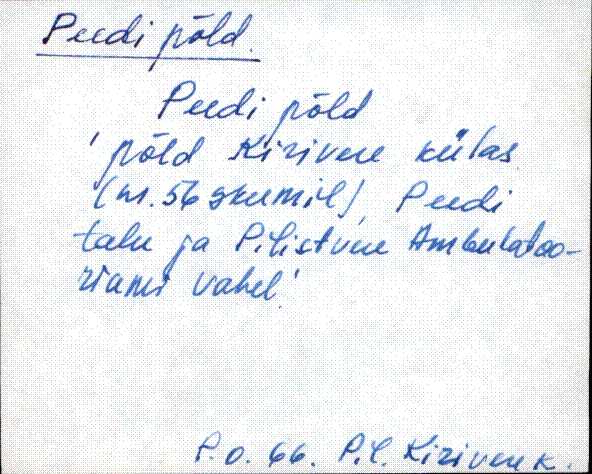 Peedi põld.
Peedi põld
'põld Kirivere külas
(nr. 56 skeemil), Peedi
talu ja Pilistvere Ambulatoo-
riumi vahel.'
P.O. 66. Pil. Kirivere k.